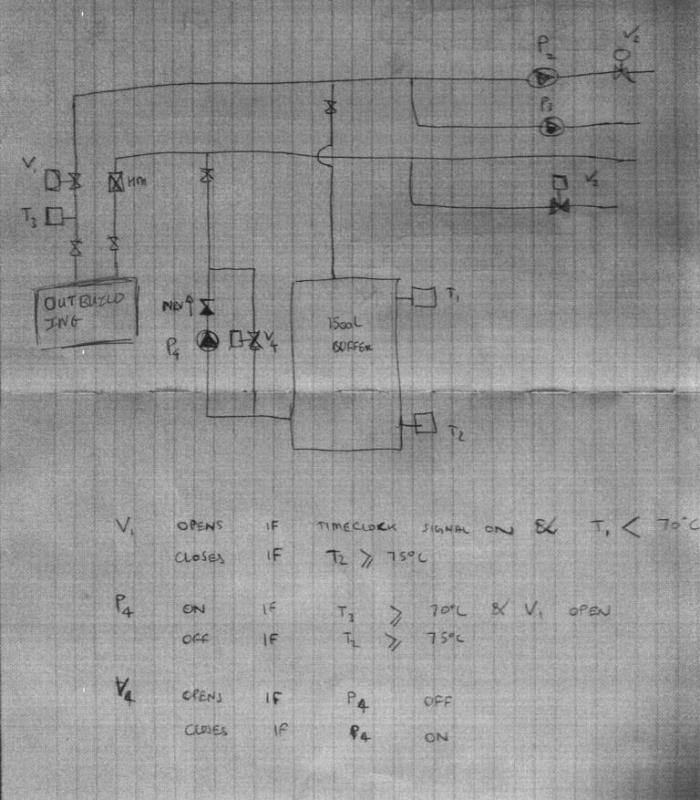 P2
V2
P3
V1
HM
V3
T3
OUTBUILD
ING
NRV
P4
V4
1500L
BUFFER
T1
T2
V1 OPENS IF TIMECLOCK SIGNAL ON & T1 < 70°C
CLOSES IF T2 ⩾ 75°C
P4 ON IF T3 ⩾ 70°C & V1 OPEN
OFF IF T2 ⩾ 75°C
V4 OPENS IF P4 OFF
CLOSES IF P4 ON